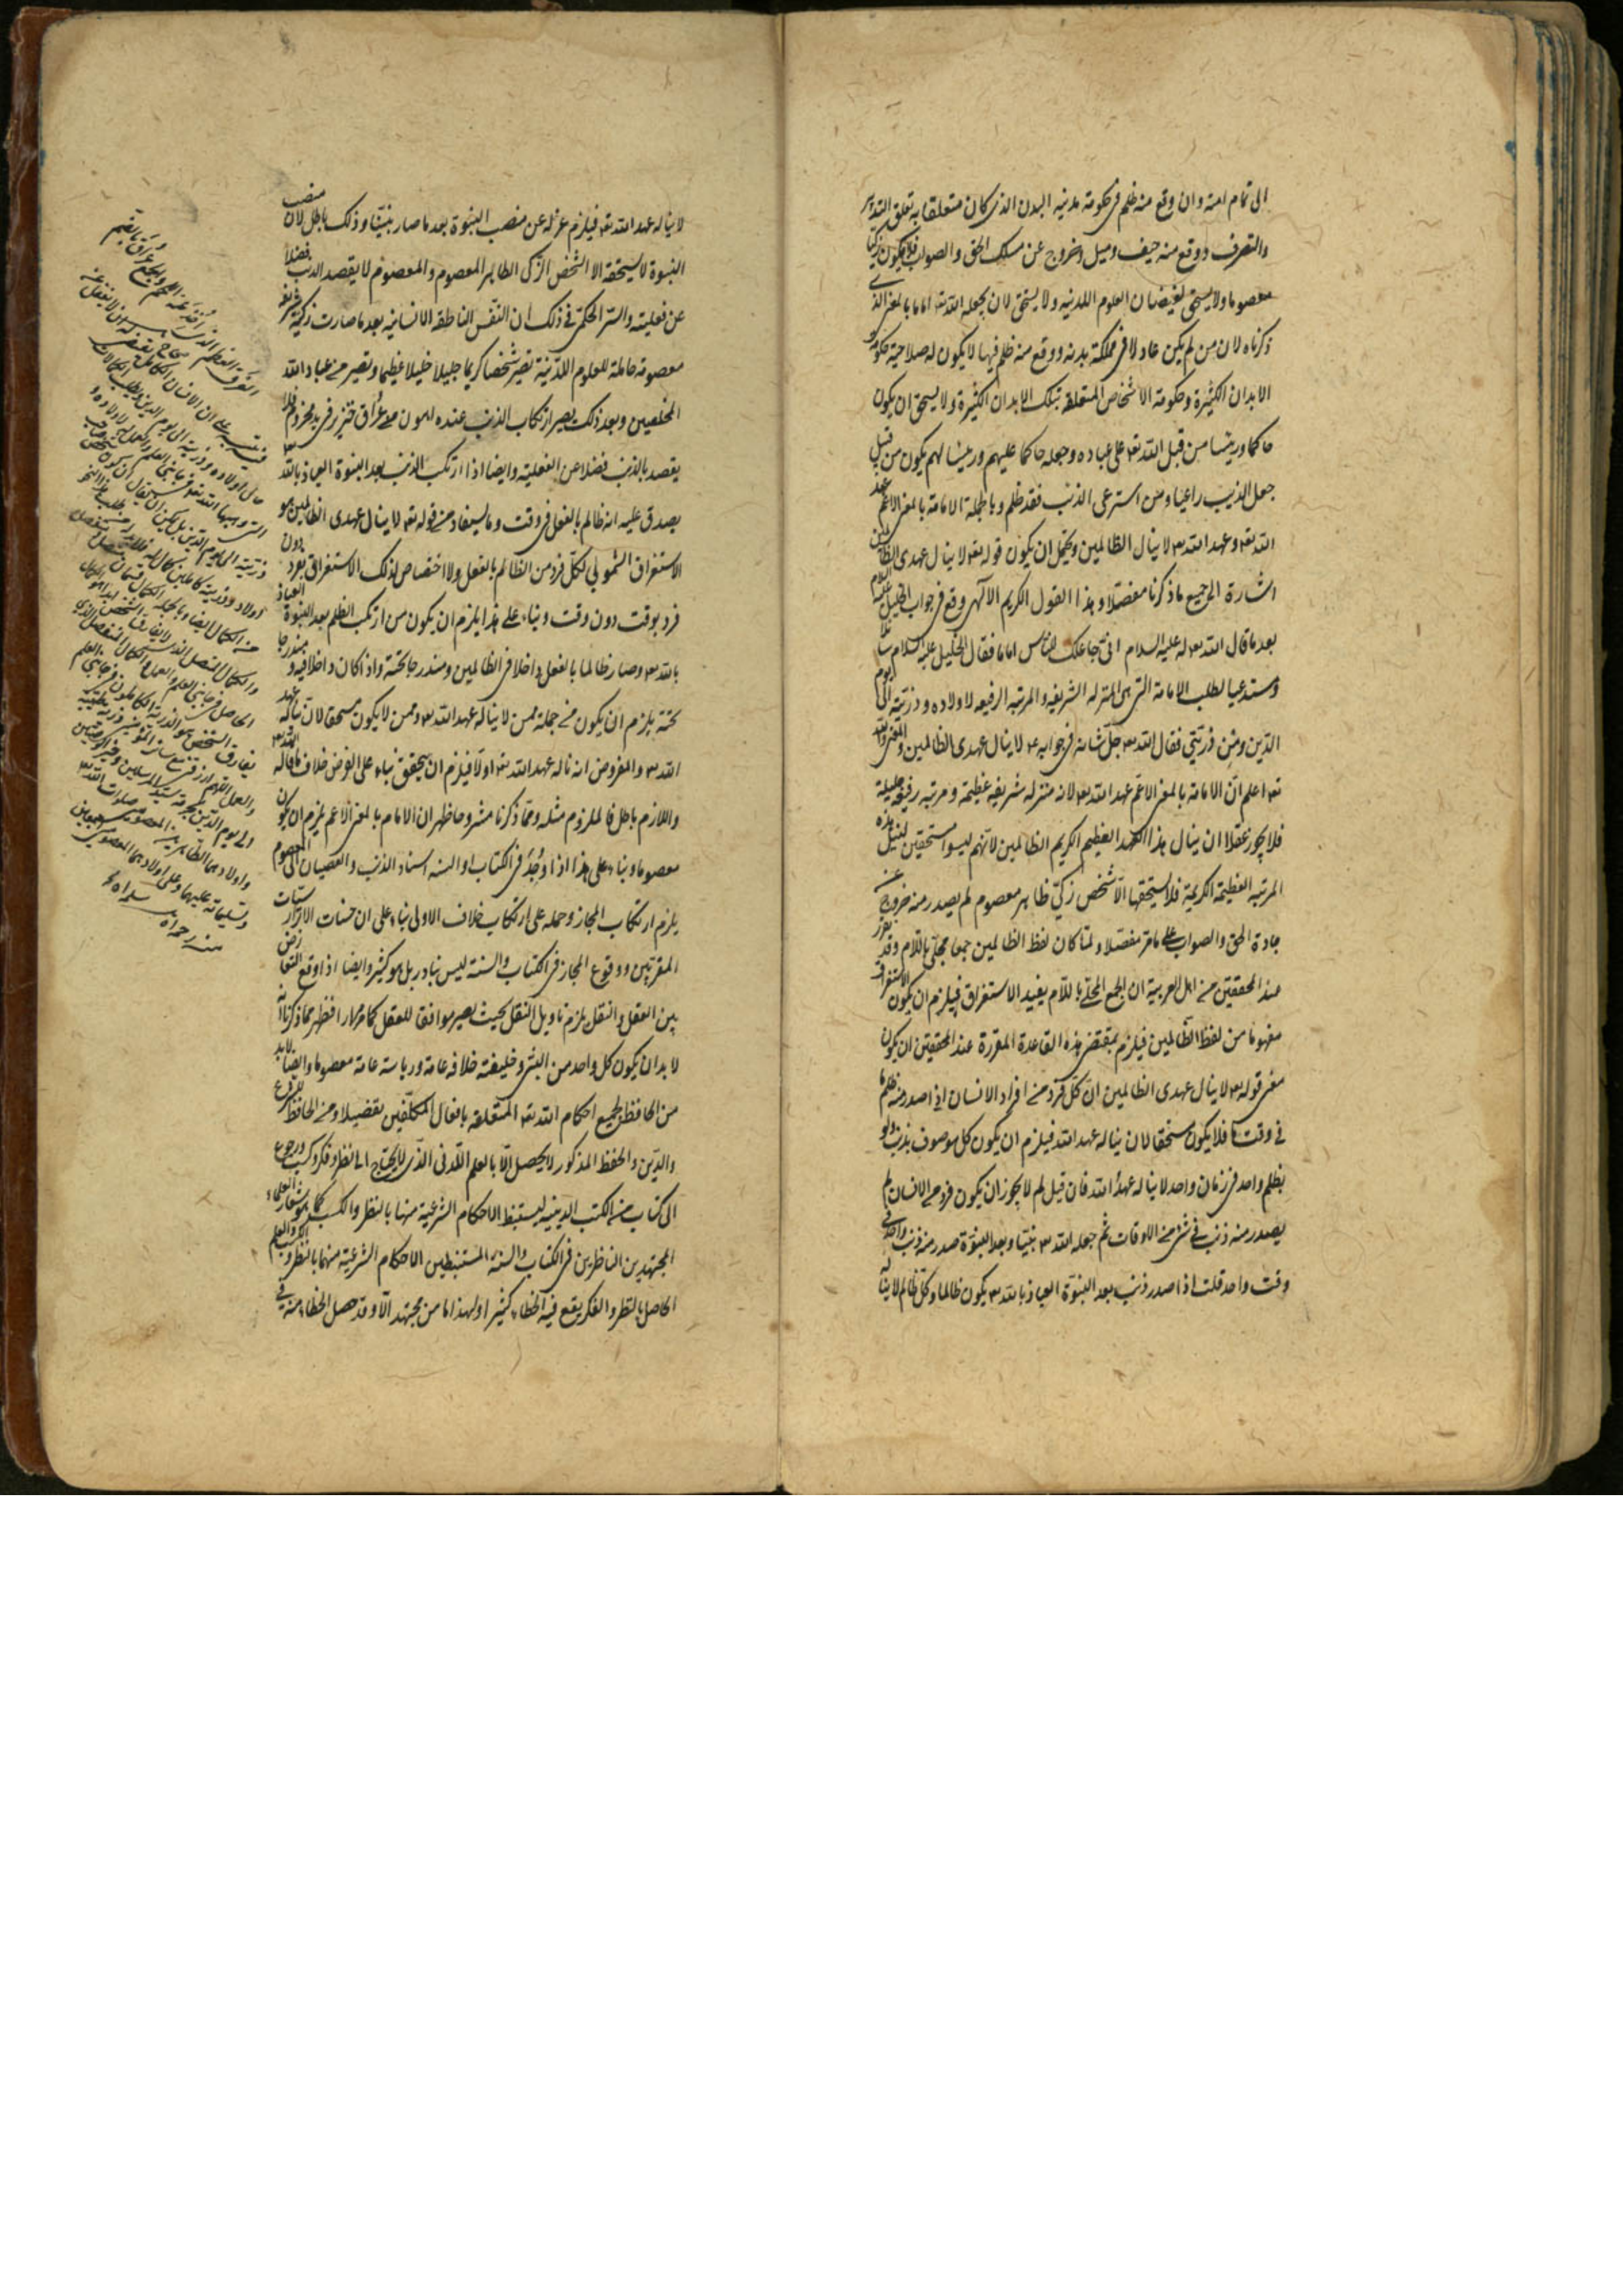 الى تمام امته وان وقع منه ظلم فى حكومة مدينة البدن الذى كان متعلقا به تعلق التدبير
والتصرف ووقع منه حيف وميل وخروج عن مسلك الحق والصواب فلا يكون زكيا
معصوما ولا يستحق لفيضان العلوم اللدنية ولا يستحق لان يجعله الله تعه اماما بالمعنى الذى
ذكرناه لان من لم يكن عادلا فى مملكة بدنه ووقع منه ظلم فيها لا يكون له صلاحية حكومة
الابدان الكثيرة وحكومة الاشخاص المتعلقة بتلك الابدان الكثيرة ولا يستحق ان يكون
حاكما ورئيسا من قبل الله تعه على عباده وجعله حاكما عليهم ورئيسا لهم يكون من قبيل
جعل الذيب راعيا ومن استرعى الذئب فقد ظلم وبالجملة الامامة بالمعنى الاعم عهد
الله تعه وعهد الله تعه لا ينال الظالمين ويحتمل ان يكون قوله تعه لا ينال عهدى الظالمين
اشارة الى جميع ما ذكرنا مفصلا وهذا القول الكريم الآلهى وقع فى جواب الخليل عليه السلام
بعد ما قال الله تعه له عليه السلام انى جاعلك للناس اماما فقال الخليل عليه السلام سائلا
ومستدعيا لطلب الامامة التى هى المنزلة الشريفة والمرتبة الرفيعة لاولاده وذريته الى يوم
الدين ومن ذريتى فقال الله تعه جل شانه فى جوابه عه لا ينال عهدى الظالمين والمعنى والله
تعه اعلم ان الامامة بالمعنى الاعم عهد الله تعه لانه منزلة شريفة عظيمة ومرتبة رفيعة جليلة
فلا يجوز عقلا ان ينال هذا العهد العظيم الكريم الظالمين لانهم ليسوا مستحقين لنيل هذه
المرتبة العظيمة الكريمة فلا يستحقها الا شخص زكى طاهر معصوم لم يصدر منه خروج عن
جادة الحق والصواب على ما مر مفصلا ولما كان لفظ الظالمين جمعا محلى باللام وقد تقرر
عند المحققين من اهل العربية ان الجمع المحلى باللام يفيد الاستغراق فيلزم ان يكون الاستغراق
مفهوما من لفظ الظالمين فيلزم بمقتضى هذه القاعدة المقررة عند المحققين ان يكون
معنى قوله تعه لا ينال عهدى الظالمين ان كل فرد من افراد الانسان اذا صدر منه ظلم ما
فى وقت ما فلا يكون مستحقا لان يناله عهد الله فيلزم ان يكون كل موصوف بذنب ولو
بظلم واحد فى زمان واحد لا يناله عهد الله فان قيل لم لا يجوز ان يكون فرد من الانسان لم
يصدر منه ذنب فى شئ من الاوقات ثم جعله الله تعه نبيا وبعد النبوة صدر منه ذنب واحد فى
وقت واحد قلت اذا صدر ذنب بعد النبوة العياذ بالله تعه يكون ظالما وكل ظالم لا يناله
لا يناله عهد الله تعه فيلزم عزله عن منصب النبوة بعد ما صار نبيا وذلك باطل لان منصب
النبوة لا يستحقه الا الشخص الزكى الطاهر المعصوم والمعصوم لا يقصد الذنب فضلا
عن فعليته والسر الحكمى فى ذلك ان النفس الناطقة الانسانية بعد ما صارت زكية شريفة
معصومة حاملة للعلوم اللدنية تصير شخصا كريما جليلا خليلا عظيما وتصير من عباد الله
المخلصين وبعد ذلك يصير ارتكاب الذنب عنده اهون من عراق خنزير فى يد مجذوم فلا
يقصد بالذنب فضلا عن الفعلية وايضا اذا ارتكب الذنب بعد النبوة العياذ بالله تعه
يصدق عليه انه ظالم بالفعل فى وقت وما يستفاد من قوله تعه لا ينال عهدى الظالمين هو
الاستغراق الشمولى لكل فرد من الظالم بالفعل ولا اختصاص لذلك الاستغراق بفرد دون
فرد بوقت دون وقت وبناء على هذا يلزم ان يكون من ارتكب الظلم بعد النبوة العياذ
بالله تعه وصار ظالما بالفعل داخلا فى الظالمين ومندرجا تحته واذا كان داخلا فيه ومندرجا
تحته يلزم ان يكون من جملة من لا يناله عهد الله تعه وممن لا يكون مستحقا لان يناله عهد
الله تعه والمفروض انه ناله عهد الله تعه اولا فيلزم ان يتحقق بناء على الفرض خلاف ما قاله الله تعه
واللازم باطل فالملزوم مثله ومما ذكرنا مشروحا ظهر ان الامام بالمعنى الاعم يلزم ان يكون
معصوما وبناء على هذا اذا وجد فى الكتاب او السنة اسناد الذنب والعصيان الى المعصوم
يلزم ارتكاب المجاز وحمله على ارتكاب خلاف الاولى بناء على ان حسنات الابرار سيئات
المقربين ووقوع المجاز فى الكتاب والسنة ليس بنادر بل هو كثير وايضا اذا وقع التعارض
بين العقل والنقل يلزم تاويل النقل بحيث يصير موافقا للعقل كما مر مرارا فظهر مما ذكرنا انه
لا بد ان يكون كل واحد من النبى وخليفته خلافة عامة ورياسة عامة معصوما وايضا لا بد
من الحافظ لجميع احكام الله تعه المتعلقة بافعال المكلفين تفصيلا ومن الحافظ للشرع
والدين والحفظ المذكور لا يحصل الا بالعلم اللدنى الذى لا يحتاج الى نظر وفكر وكسب ورجوع
الى كتاب من الكتب الدينية ليستنبط الاحكام الشرعية منها بالنظر والكسب كما هو شعار العلماء
المجتهدين الناظرين فى الكتاب والسنة المستنبطين الاحكام الشرعية منهما بالنظر والكسب والعلم
الحاصل بالنظر والفكر يقع فيه الخطاء كثيرا ولهذا ما من مجتهد الا وقد حصل الخطاء منه فى
العرق العظم الذى اخذ عنه اللحم والجمع عراق بالضم